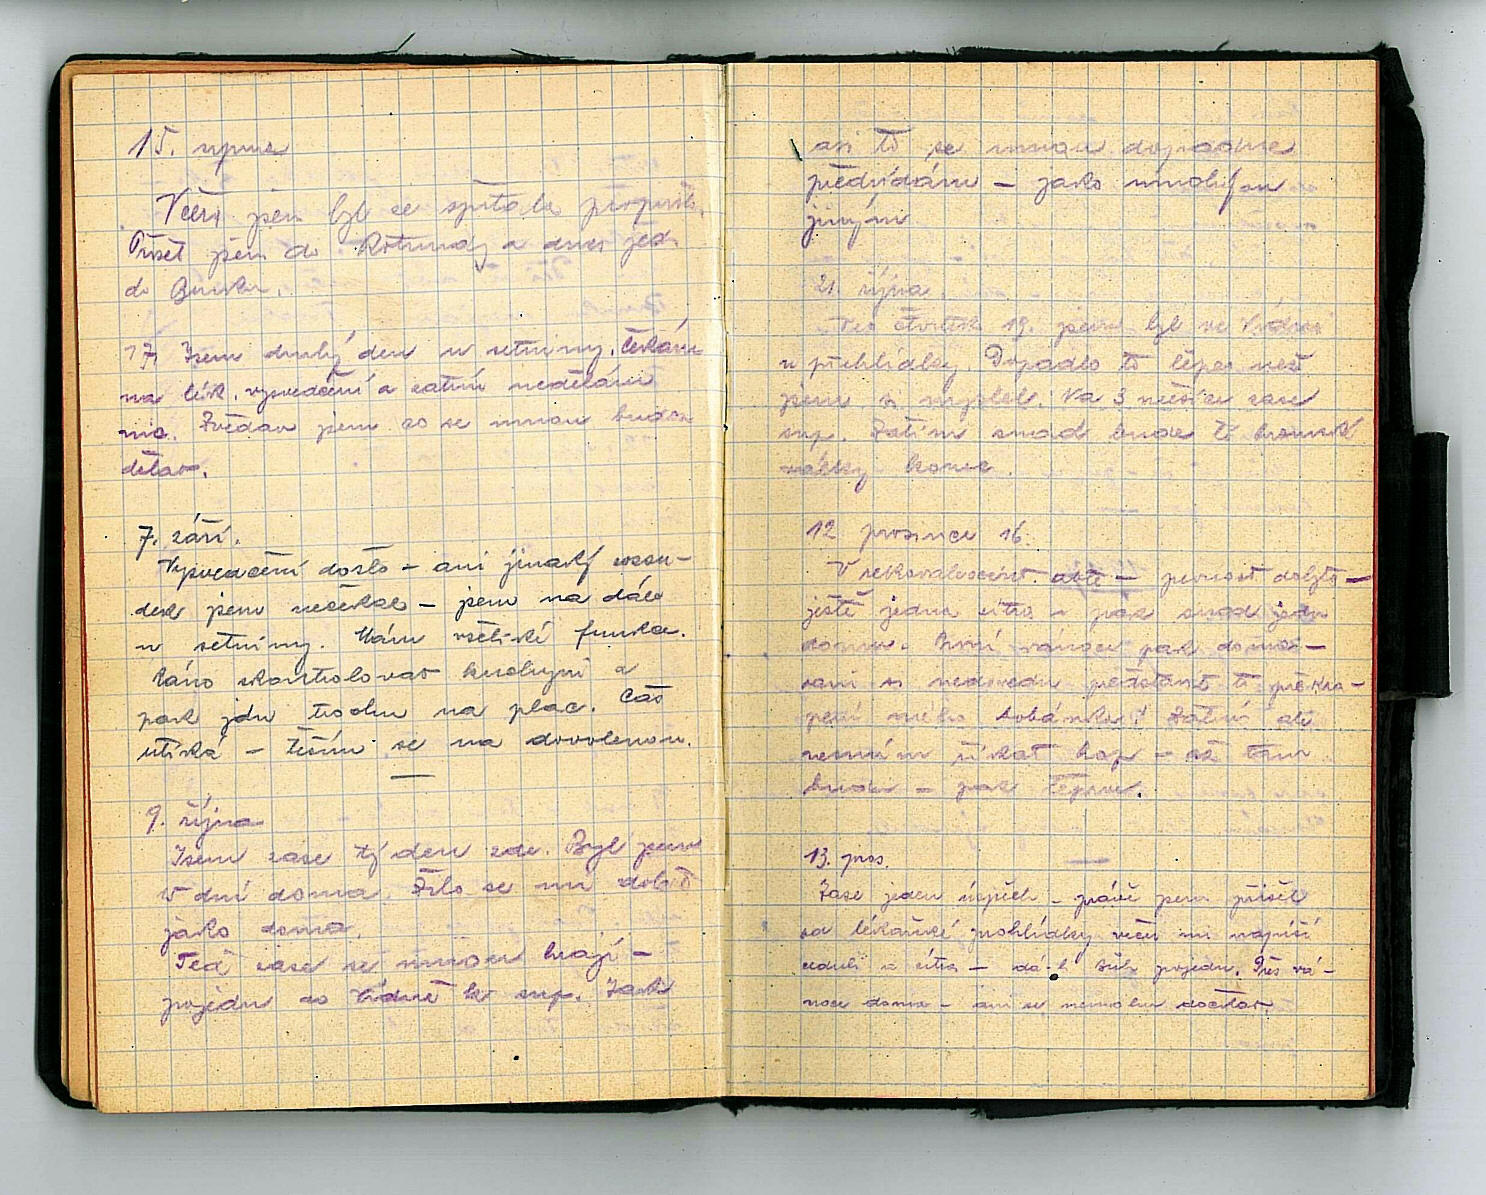 15. srpna
Včera jsem byl ze špitálu propuštěn.
Přišel jsem do Rotundy a dnes jedu
do Brucku.
17. Jsem druhý den u setniny. Čekám
na lék. vysvědčení a zatím nedělám
nic. Zvědav jsem co se mnou budou
dělat.
7. září.
Vysvědčení došlo – ani jinaký rozsu-
dek jsem nečekal – jsem na dále
u setniny. Mám všeliké funkce.
Ráno zkontrolovat kuchyni a
pak jdu trochu na plac. Čas
utíká – těším se na dovolenou.
9. října
Jsem zase týden zde. Byl jsem
dní doma. Žilo se mi dobře
jako doma.
Teď zase se mnou hrají –
pojedu do Vídně k sup. Jak
asi to se mnou dopadne
předvídám – jako mnohým
jiným
21. října
Ve čtvrtek 19. jsem byl ve Vídni
u přehlídky. Dopadlo to lépe než
jsem si myslel. Na 3 měsíce zase
sup. Zatím snad bude té
války konec.
12 prosince 16
V rekonvalescent. – jistost dobytá –
ještě jedna vizita – pak snad jedu
domů. První vánoce pak domov-
 si nedovedu představit to překva-
pení mého Zatím ale
nesmím říkat hop – až tam
budu – pak teprve.
13. pros.
Zase jeden úspěch – právě jsem přišel
od lékařské prohlídky večer mi napíší
ceduli a zítra – dá-li Bůh pojedu. Přes vá-
noce doma – ani se nemohu dočkat.